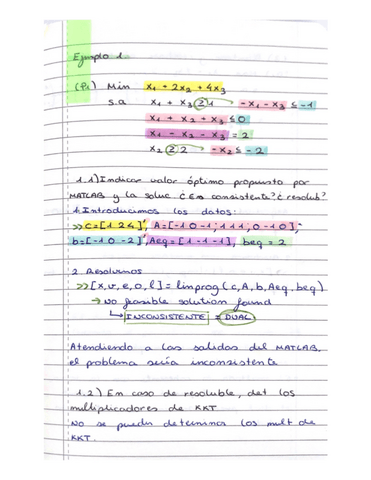 Ejemplo 1.
(P₁) Min x₁ + 2x₂ + 4x₃
s.a x₁ + x₃ ≥ 1 → -x₁ - x₃ ≤ -1
x₁ + x₂ + x₃ ≤ 0
x₁ - x₂ - x₃ = 2
x₂ ≥ 2 → -x₂ ≤ -2
1.1) Indicar valor óptimo propuesto por
MATLAB y la soluc ¿Es consistente? ¿resolub?
1. Introducimos los datos:
>> c=[1 2 4]', A=[-1 0 -1; 1 1 1; 0 -1 0];
b=[-1 0 -2]', Aeq=[1 -1 -1], beq = 2
2. Resolvemos
>> [x,v,e,o,l] = linprog(c,A,b,Aeq,beq)
→ No feasible solution found
↳ INCONSISTENTE = DUAL
Atendiendo a las salidas del MATLAB,
el problema sería inconsistente
1.2) En caso de resoluble, det los
multiplicadores de KKT
No se pueden determinar los mult de
KKT.